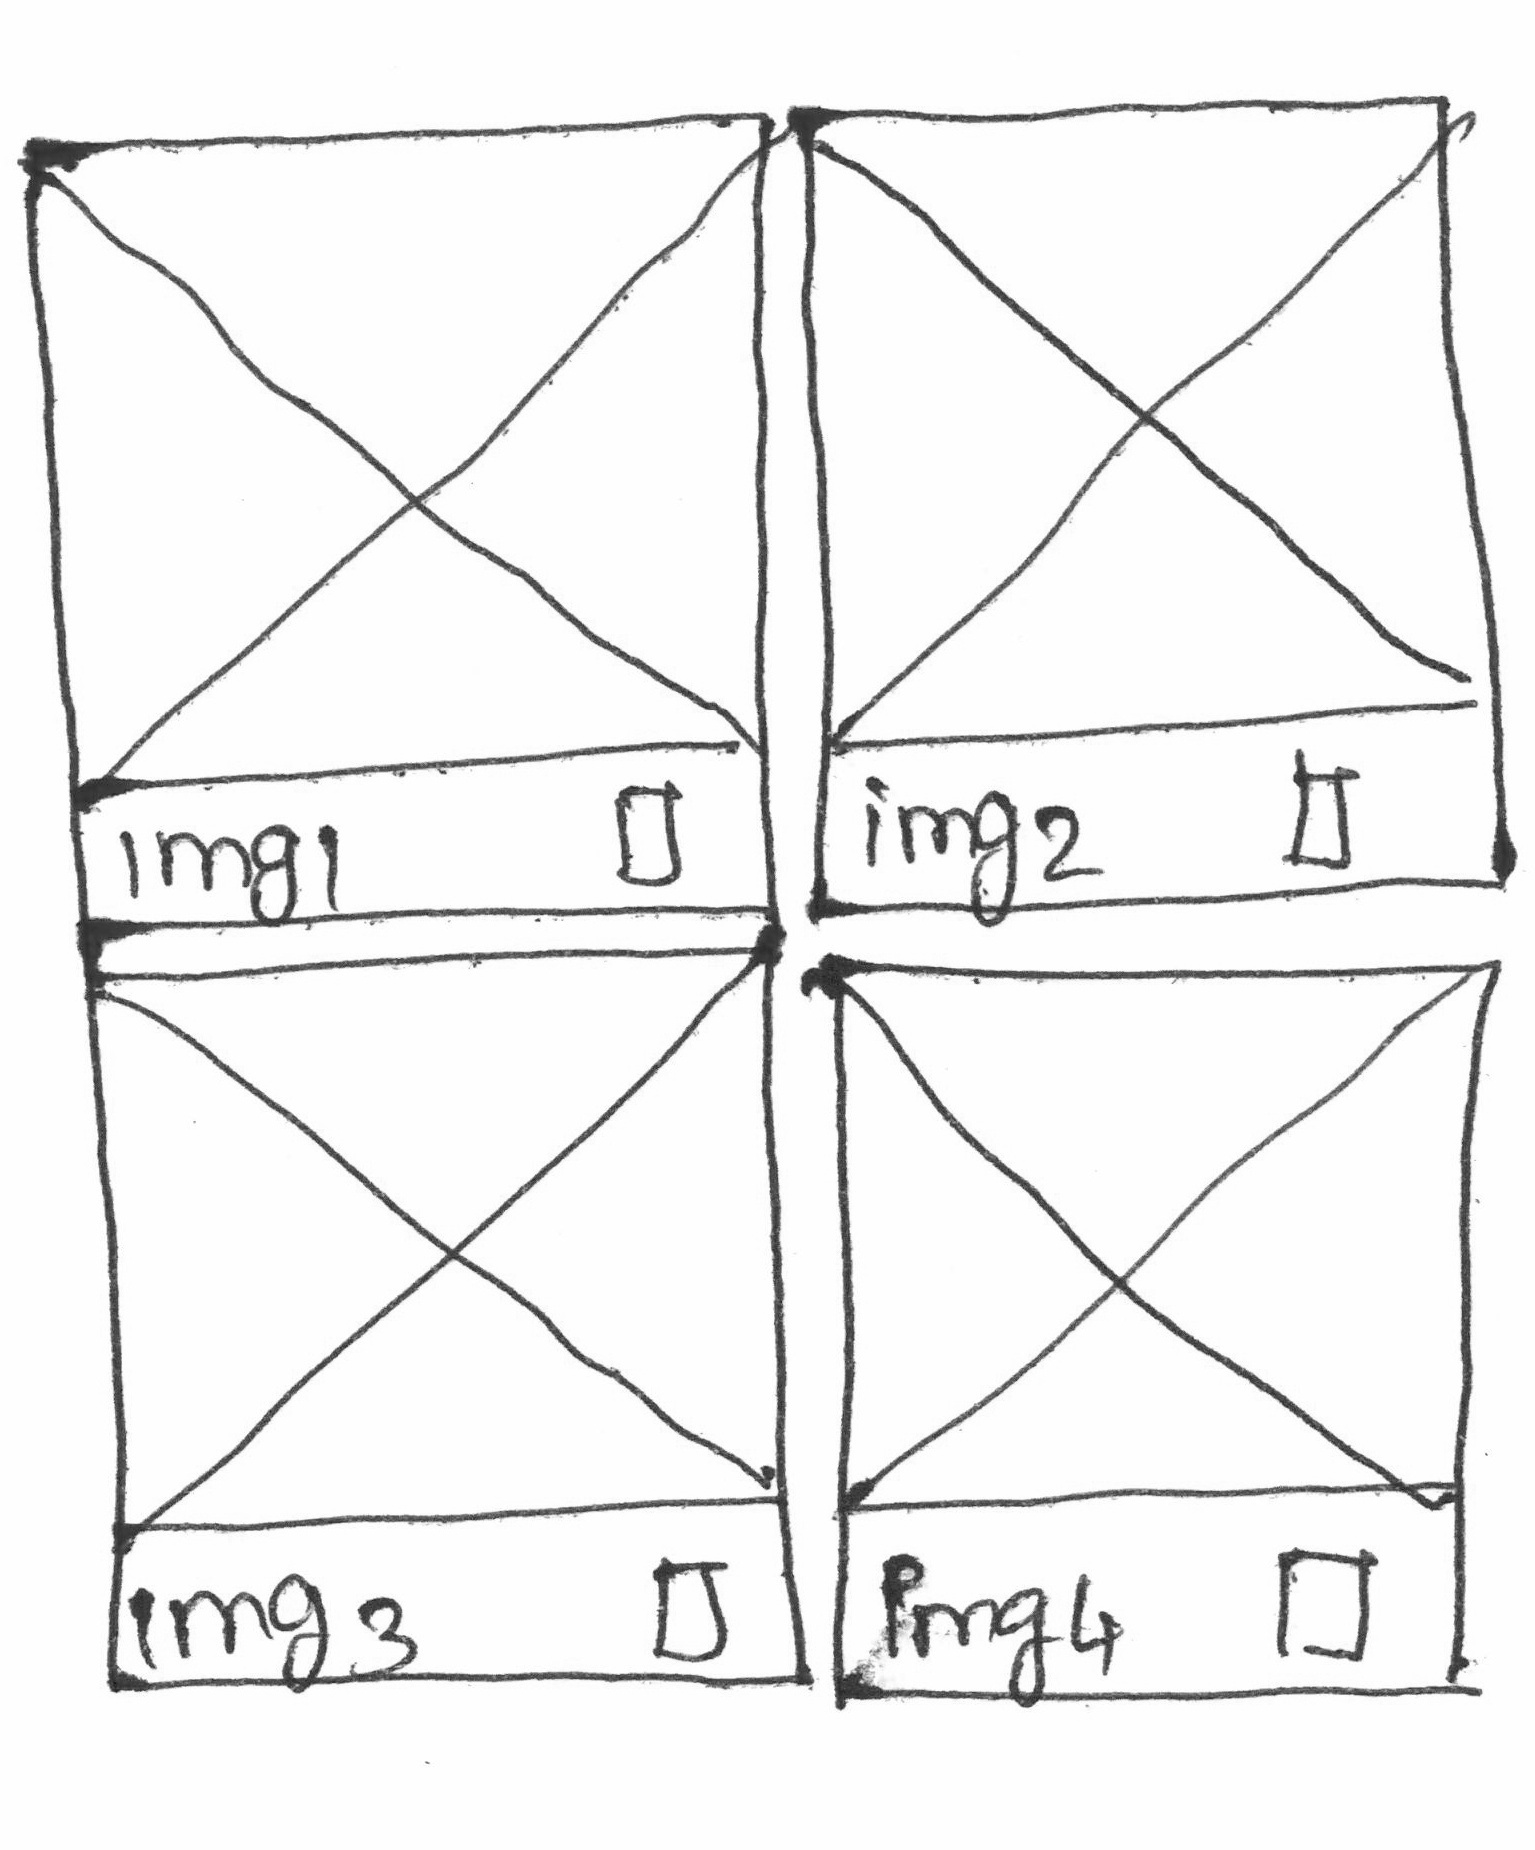 img1
img2
img3
img4